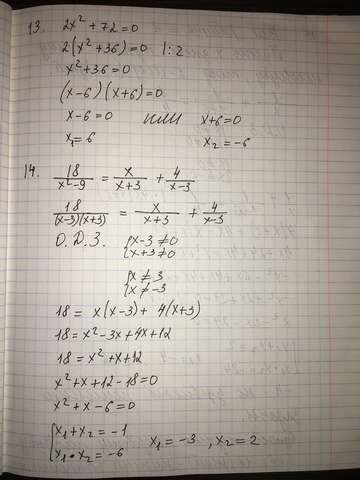 13. 2x² + 72 = 0
2(x² + 36) = 0 | : 2
x² + 36 = 0
(x - 6)(x + 6) = 0
x - 6 = 0 или x + 6 = 0
x₁ = 6 x₂ = -6
14. 18/(x² - 9) = x/(x + 3) + 4/(x - 3)
18/((x - 3)(x + 3)) = x/(x + 3) + 4/(x - 3)
О. Д. З. { x - 3 ≠ 0
{ x + 3 ≠ 0
{ x ≠ 3
{ x ≠ -3
18 = x(x - 3) + 4(x + 3)
18 = x² - 3x + 4x + 12
18 = x² + x + 12
x² + x + 12 - 18 = 0
x² + x - 6 = 0
{ x₁ + x₂ = -1
{ x₁ • x₂ = -6 x₁ = -3 , x₂ = 2